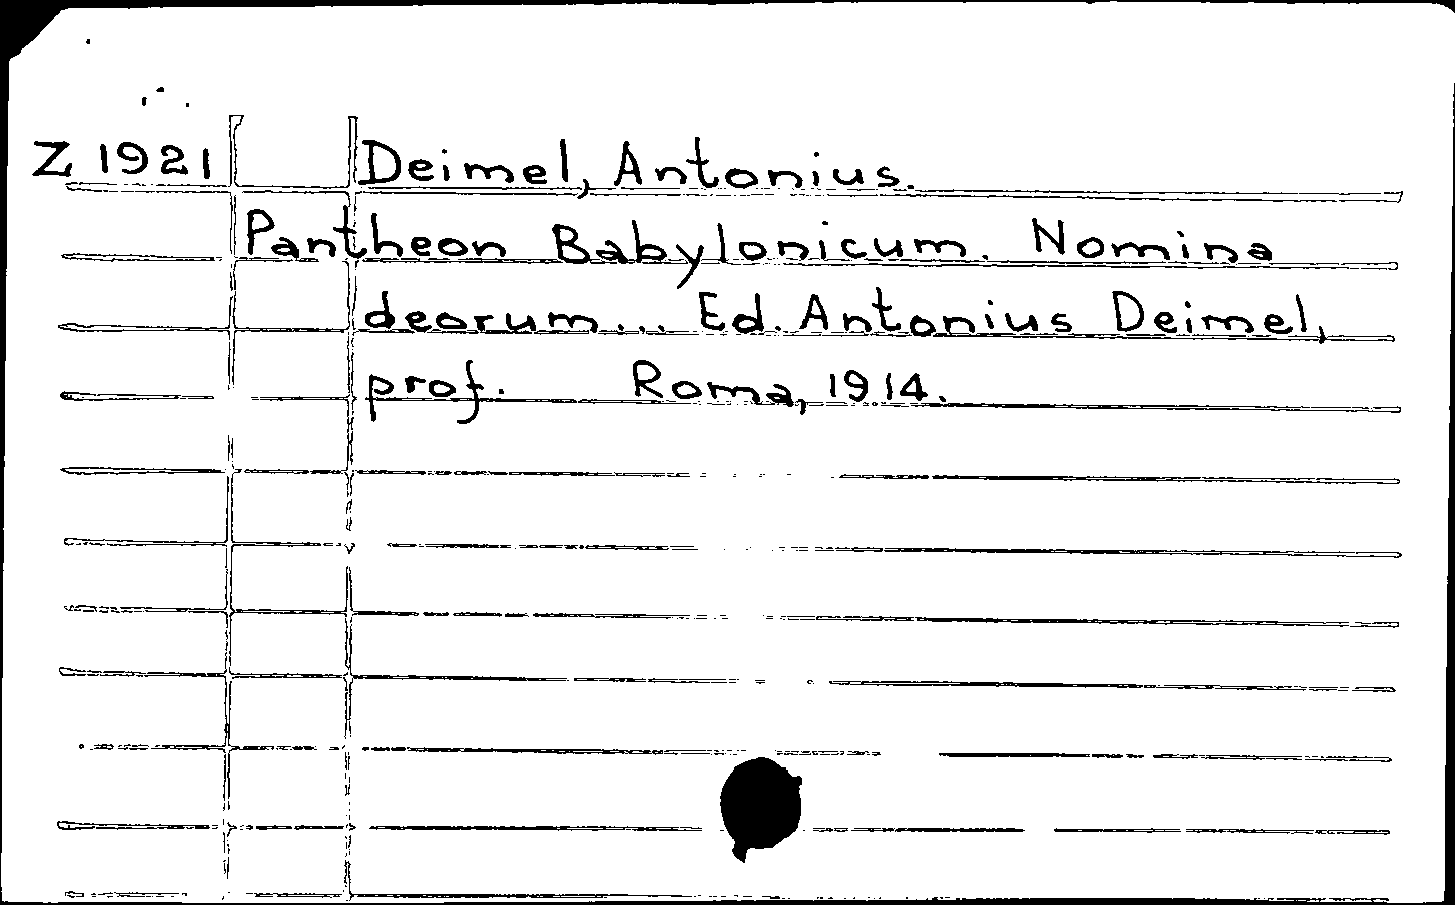 Z 1921 Deimel, Antonius.
Pantheon Babylonicum. Nomina
deorum... Ed. Antonius Deimel,
prof. Roma, 1914.